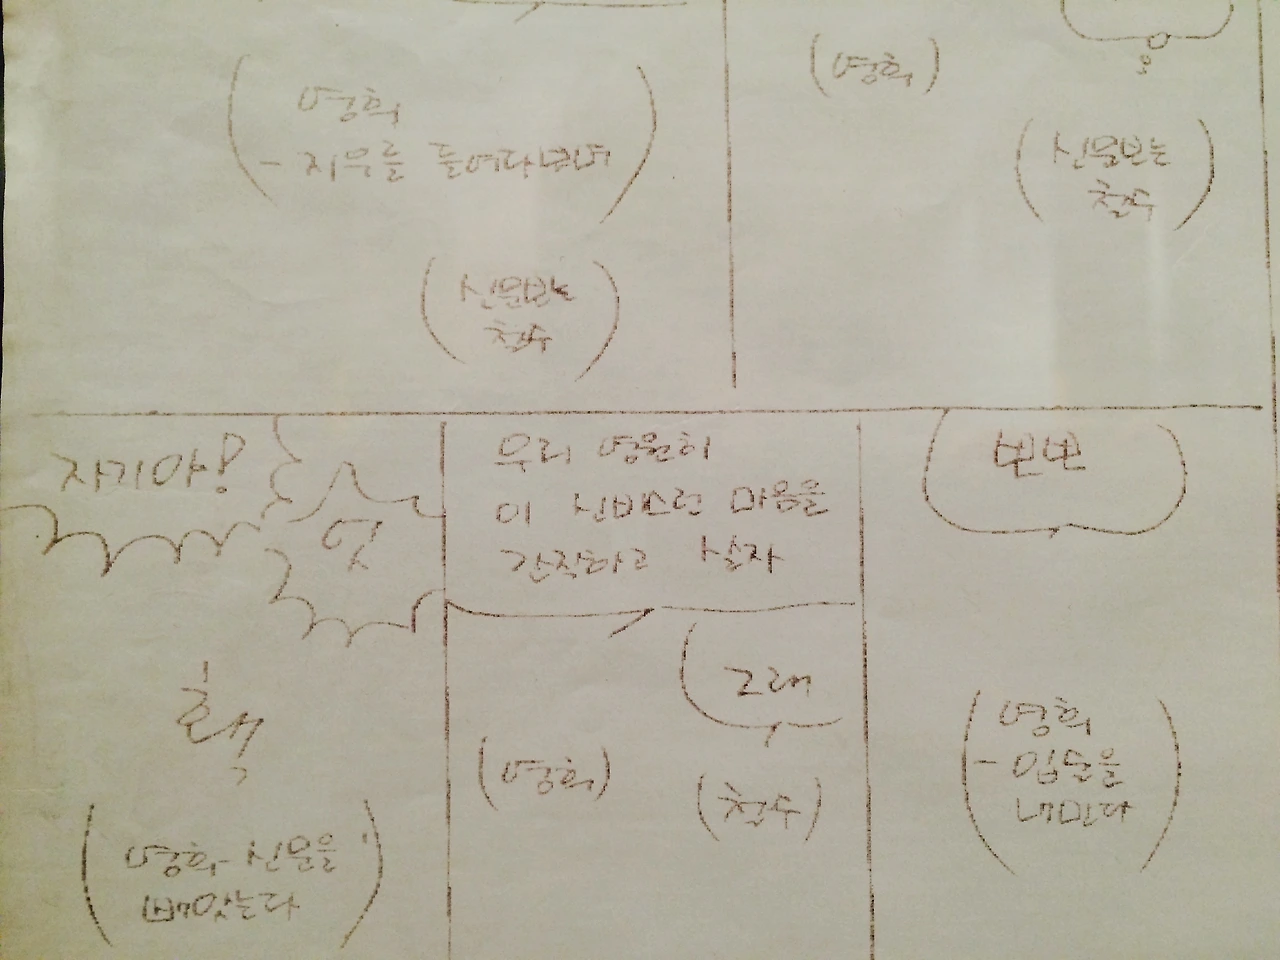 영희
- 지우를 들여다보며
신문보는
철수
영희
신문보는
철수
자기야!
엇
홱
영희 - 신문을
빼앗는다
우리 영원히
이 신비스런 마음을
간직하고 살자
그래
(영희)
(철수)
뻔뻔
영희
- 입술을
내민다